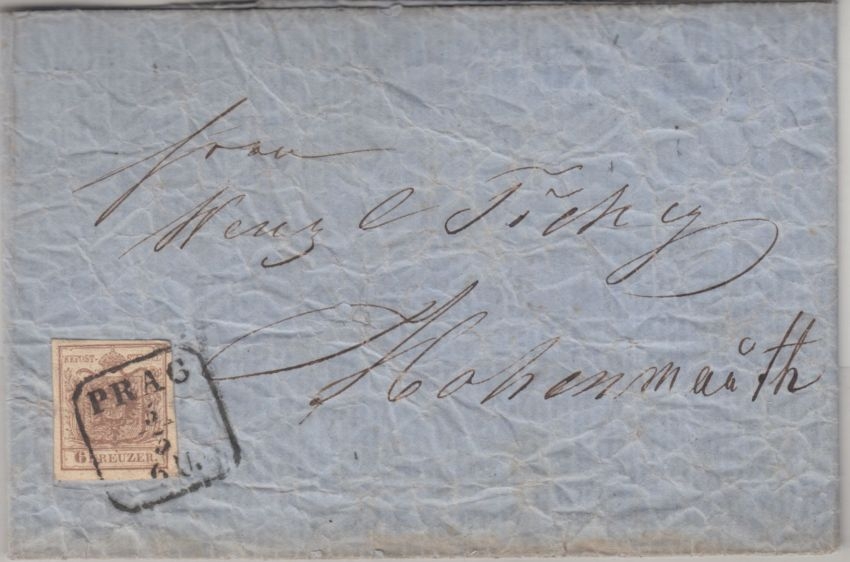 Herrn
Wenzl Tichy
Hohenmauth
KKPOST-STEMPEL
6 KREUZER.
PRAG
5/5
6 U.